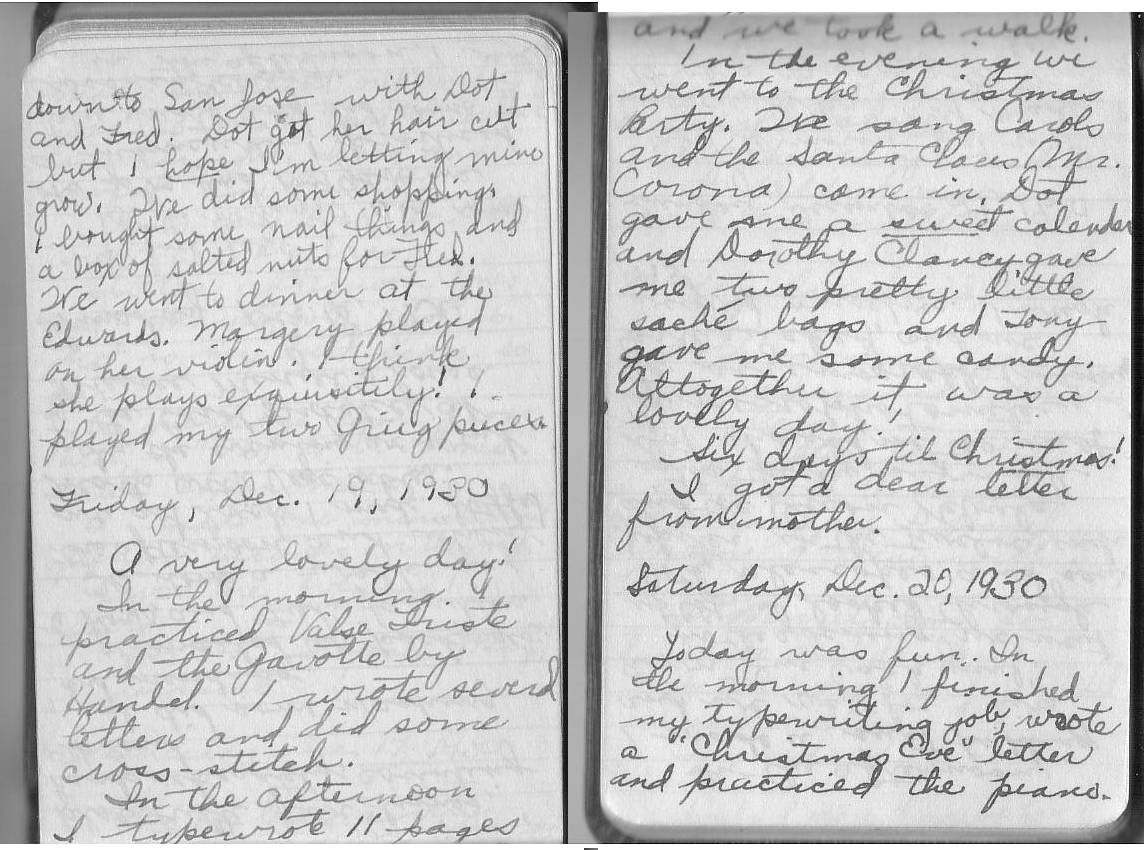 down to San Jose with Dot
and Fred. Dot got her hair cut
but I hope I'm letting mine
grow. We did some shopping.
I bought some nail things and
a box of salted nuts for
We went to dinner at the
Edwards. Margery played
on her violin. I think
she plays exquisitely! I
played my two Grieg pieces.
Friday, Dec. 19, 1930
A very lovely day!
In the morning I
practiced Valse Triste
and the Gavotte by
Handel. I wrote several
letters and did some
cross-stitch.
In the afternoon
I typewrote 11 pages
and we took a walk.
In the evening we
went to the Christmas
Party. We sang Carols
and the Santa Claus (Mr.
Corona) came in. Dot
gave me a sweet calendar
and Dorothy Clancy gave
me two pretty little
saché bags and Tony
gave me some candy.
Altogether it was a
lovely day!
Six days 'til Christmas!
I got a dear letter
from mother.
Saturday, Dec. 20, 1930
Today was fun. In
the morning I finished
my typewriting job, wrote
a "Christmas Eve" letter
and practiced the piano.